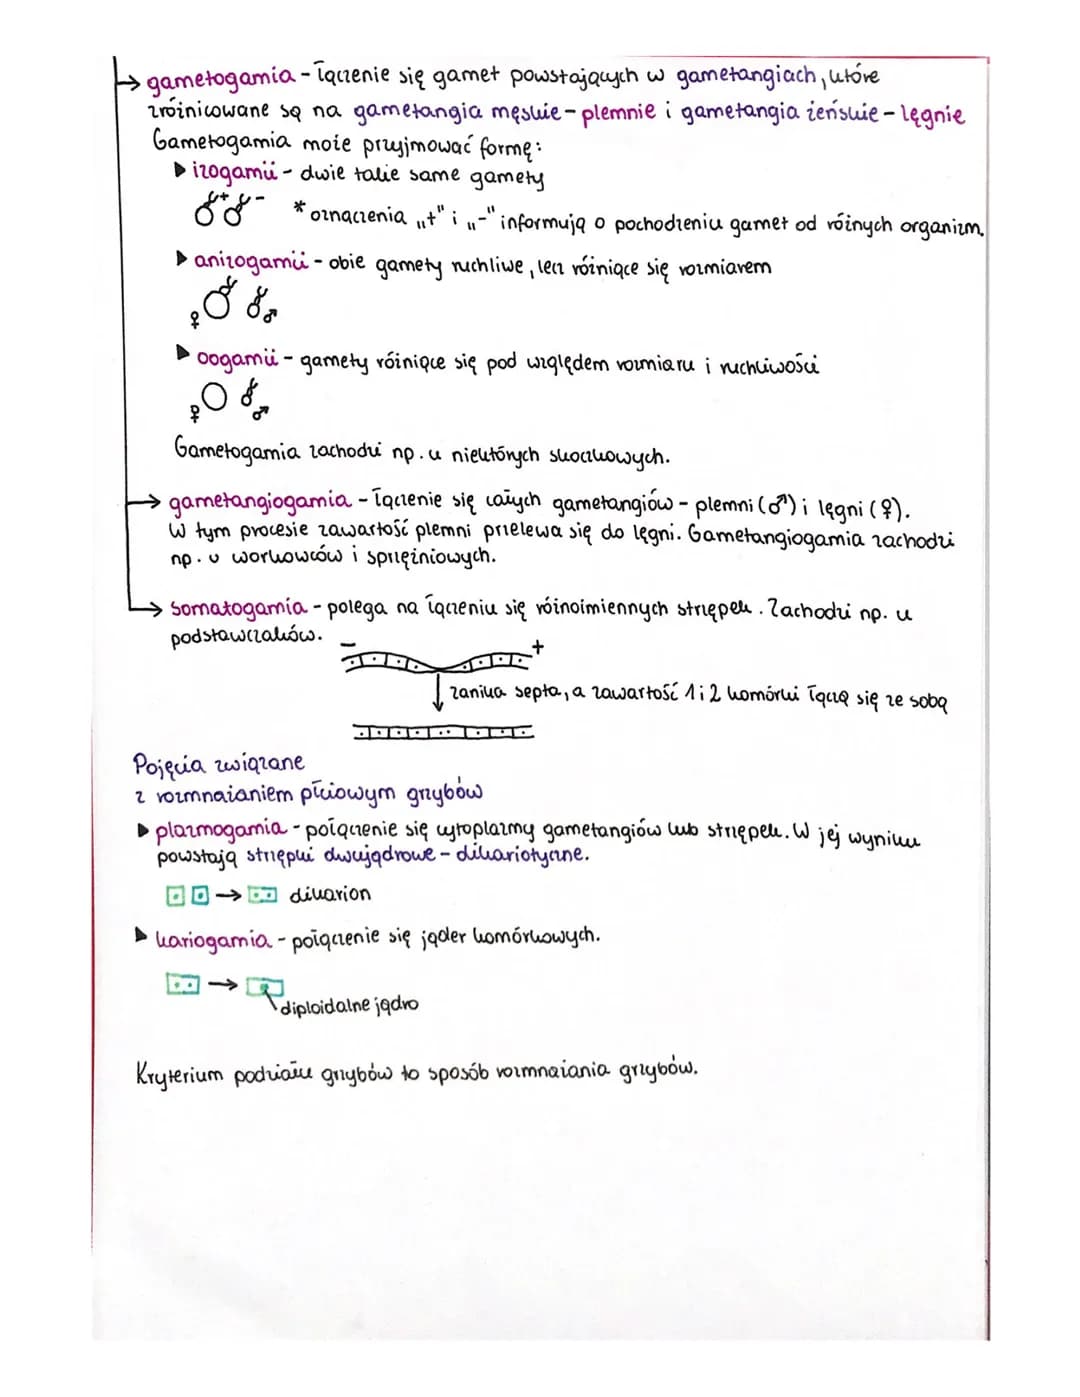 → gametogamia - łączenie się gamet powstających w gametangiach, które
zróżnicowane są na gametangia męskie - plemnie i gametangia żeńskie - lęgnie
Gametogamia może przyjmować formę:
▶ izogamii - dwie takie same gamety
+ - * oznaczenia „+" i „-" informują o pochodzeniu gamet od różnych organizm.
▶ anizogamii - obie gamety ruchliwe, lecz różniące się rozmiarem
♀ ♂
▶ oogamii - gamety różniące się pod względem rozmiaru i ruchliwości
♀ ♂
Gametogamia zachodzi np. u niektórych skoczkowych.
→ gametangiogamia - łączenie się całych gametangiów - plemni (♂) i lęgni (♀).
W tym procesie zawartość plemni przelewa się do lęgni. Gametangiogamia zachodzi
np. u workowców i sprzężniowych.
→ somatogamia - polega na łączeniu się różnoimiennych strzępek. Zachodzi np. u
podstawczaków.
- +
zanika septa, a zawartość 1 i 2 komórki łączą się ze sobą
Pojęcia związane
z rozmnażaniem płciowym grzybów
▶ plazmogamia - połączenie się cytoplazmy gametangiów lub strzępek. W jej wyniku
powstają strzępki dwujądrowe - dikariotyczne.
→ dikarion
▶ kariogamia - połączenie się jąder komórkowych.
→
diploidalne jądro
Kryterium podziału grzybów to sposób rozmnażania grzybów.